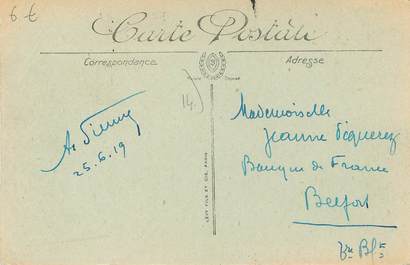 6 €
Carte Postale
Correspondance
Adresse
14
25.6.19
Mademoiselle
Jeanne
Banque de France
Belfort
LÉVY FILS ET CIE, PARIS